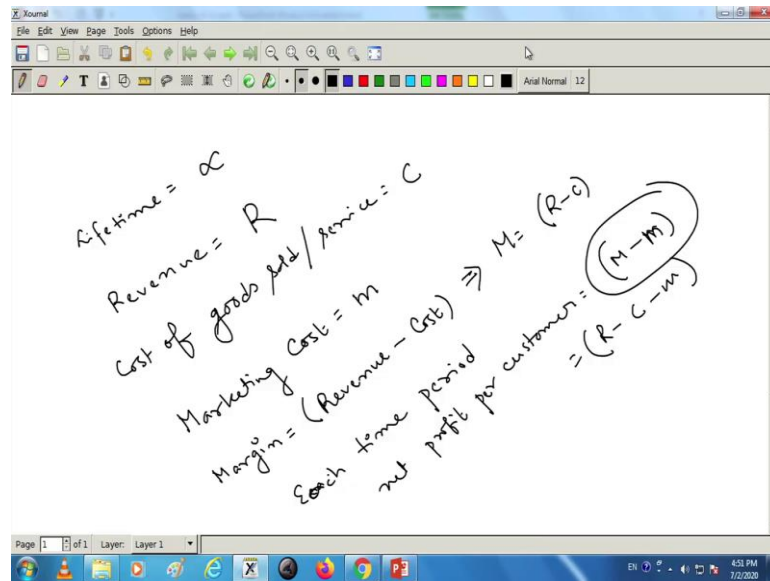 Xournal
File Edit View Page Tools Options Help
Arial Normal 12
Lifetime = ∝
Revenue = R
Cost of goods sold/service = C
Marketing Cost = m
Margin = (Revenue - Cost) ⇒ M = (R-C)
Each time period
net profit per customer = (M-m)
= (R-C-m)
Page 1 of 1 Layer: Layer 1
EN 4:51 PM
7/2/2020